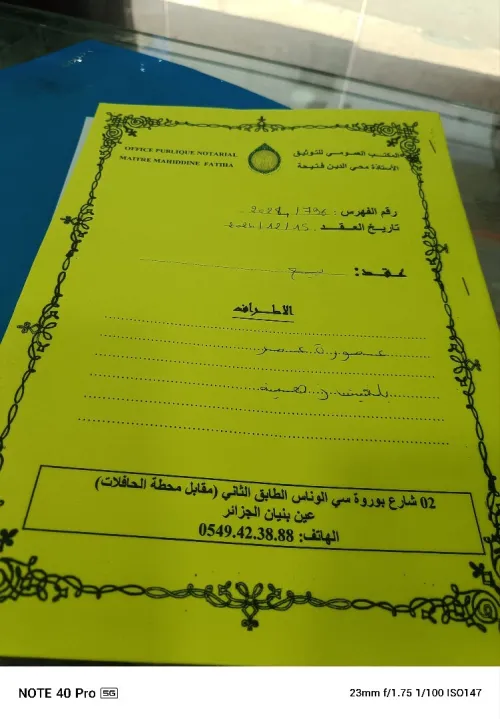 OFFICE PUBLIQUE NOTARIAL
MAITRE MAHIDDINE FATIHA
المكتب العمومي للتوثيق
الأستاذة محي الدين فتيحة
رقم الفهرس : 2024/796
تاريخ العقد : 2024/12/15
عقد: بيع
الأطراف
عمورة عمر
02 شارع بوروة سي الوناس الطابق الثاني (مقابل محطة الحافلات)
عين بنيان الجزائر
الهاتف: 0549.42.38.88
NOTE 40 Pro 5G
23mm f/1.75 1/100 ISO147